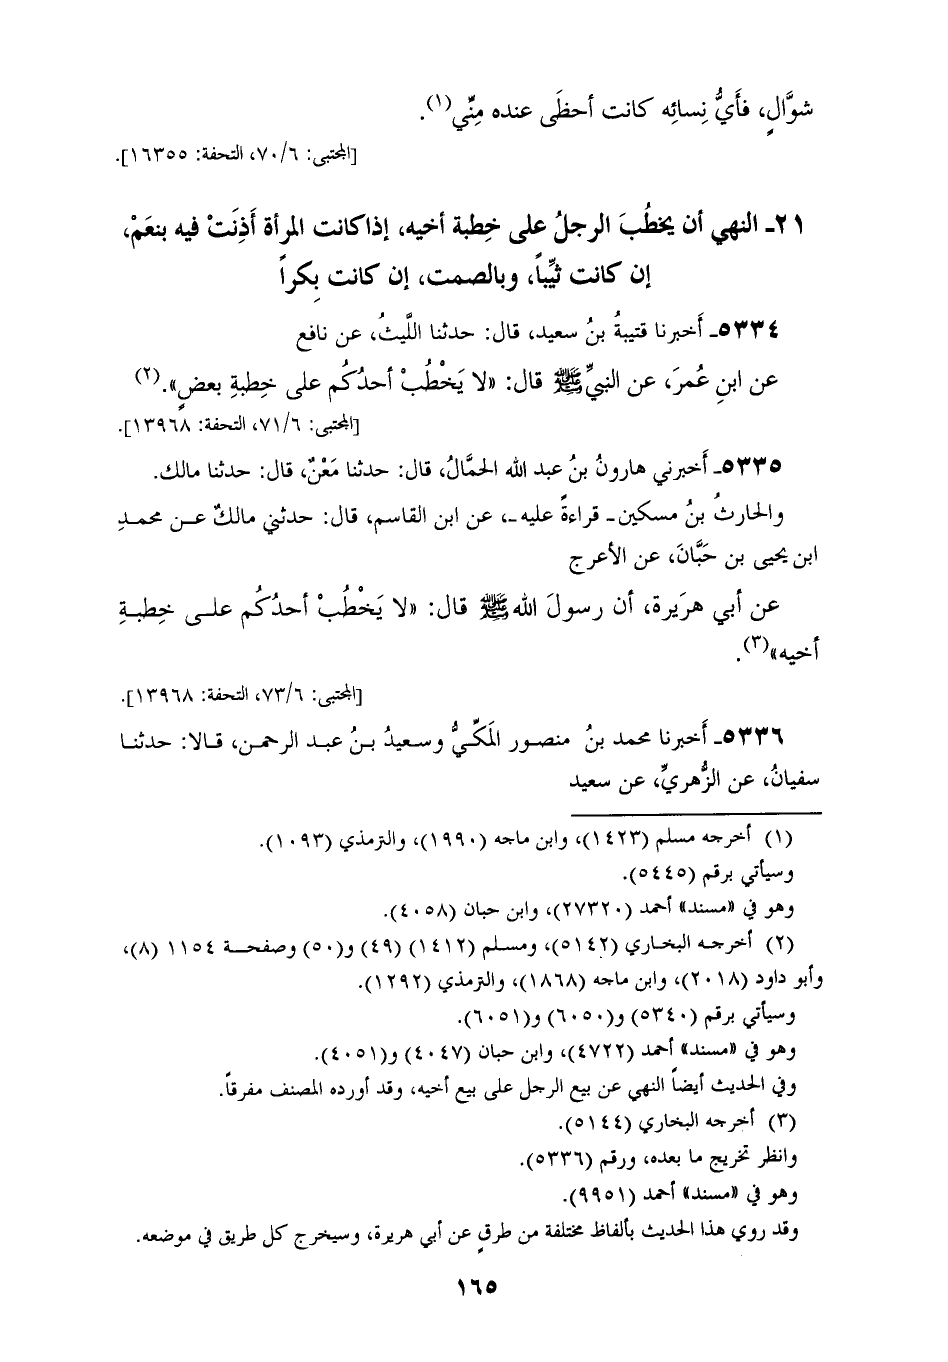 شوَّالٍ، فأَيُّ نِسائِه كانت أحظَى عنده مِنِّي(١).
[المجتبى: ٧٠/٦، التحفة: ١٦٣٥٥].
٢١ـ النهي أن يخطُبَ الرجلُ على خِطبة أخيه، إذا كانت المرأة أَذِنَتْ فيه بنعَمْ،
إن كانت ثيِّباً، وبالصمت، إن كانت بِكراً
٥٣٣٤ـ أَخبرنا قتيبةُ بنُ سعيد، قال: حدثنا اللَّيثُ، عن نافع
عن ابنِ عُمرَ، عن النبيِّ ﷺ قال: «لا يَخْطُبْ أحدُكُم على خِطبةِ بعضٍ».(٢)
[المجتبى: ٧١/٦، التحفة: ١٣٩٦٨].
٥٣٣٥ـ أَخبرني هارونُ بنُ عبد الله الحمَّالُ، قال: حدثنا مَعْنٌ، قال: حدثنا مالك.
والحارثُ بنُ مسكين ـ قراءةً عليه ـ، عن ابن القاسم، قال: حدثني مالكٌ عن محمدِ
ابن يحيى بن حَبَّانَ، عن الأعرج
عن أبي هرَيرة، أن رسولَ الله ﷺ قال: «لا يَخْطُبْ أحدُكُم على خِطبةِ
أخيه»(٣).
[المجتبى: ٧٣/٦، التحفة: ١٣٩٦٨].
٥٣٣٦ـ أَخبرنا محمد بنُ منصور المَكِّيُّ وسعيدُ بنُ عبد الرحمن، قالا: حدثنا
سفيانُ، عن الزُّهريِّ، عن سعيد
(١) أخرجه مسلم (١٤٢٣)، وابن ماجه (١٩٩٠)، والترمذي (١٠٩٣).
وسيأتي برقم (٥٤٤٥).
وهو في «مسند» أحمد (٢٧٣٢٠)، وابن حبان (٤٠٥٨).
(٢) أخرجه البخاري (٥١٤٢)، ومسلم (١٤١٢) (٤٩) و(٥٠) وصفحة ١١٥٤ (٨)،
وأبو داود (٢٠١٨)، وابن ماجه (١٨٦٨)، والترمذي (١٢٩٢).
وسيأتي برقم (٥٣٤٠) و(٦٠٥٠) و(٦٠٥١).
وهو في «مسند» أحمد (٤٧٢٢)، وابن حبان (٤٠٤٧) و(٤٠٥١).
وفي الحديث أيضاً النهي عن بيع الرجل على بيع أخيه، وقد أورده المصنف مفرقاً.
(٣) أخرجه البخاري (٥١٤٤).
وانظر تخريج ما بعده، ورقم (٥٣٣٦).
وهو في «مسند» أحمد (٩٩٥١).
وقد روي هذا الحديث بألفاظ مختلفة من طرقٍ عن أبي هريرة، وسيخرج كل طريق في موضعه.
١٦٥